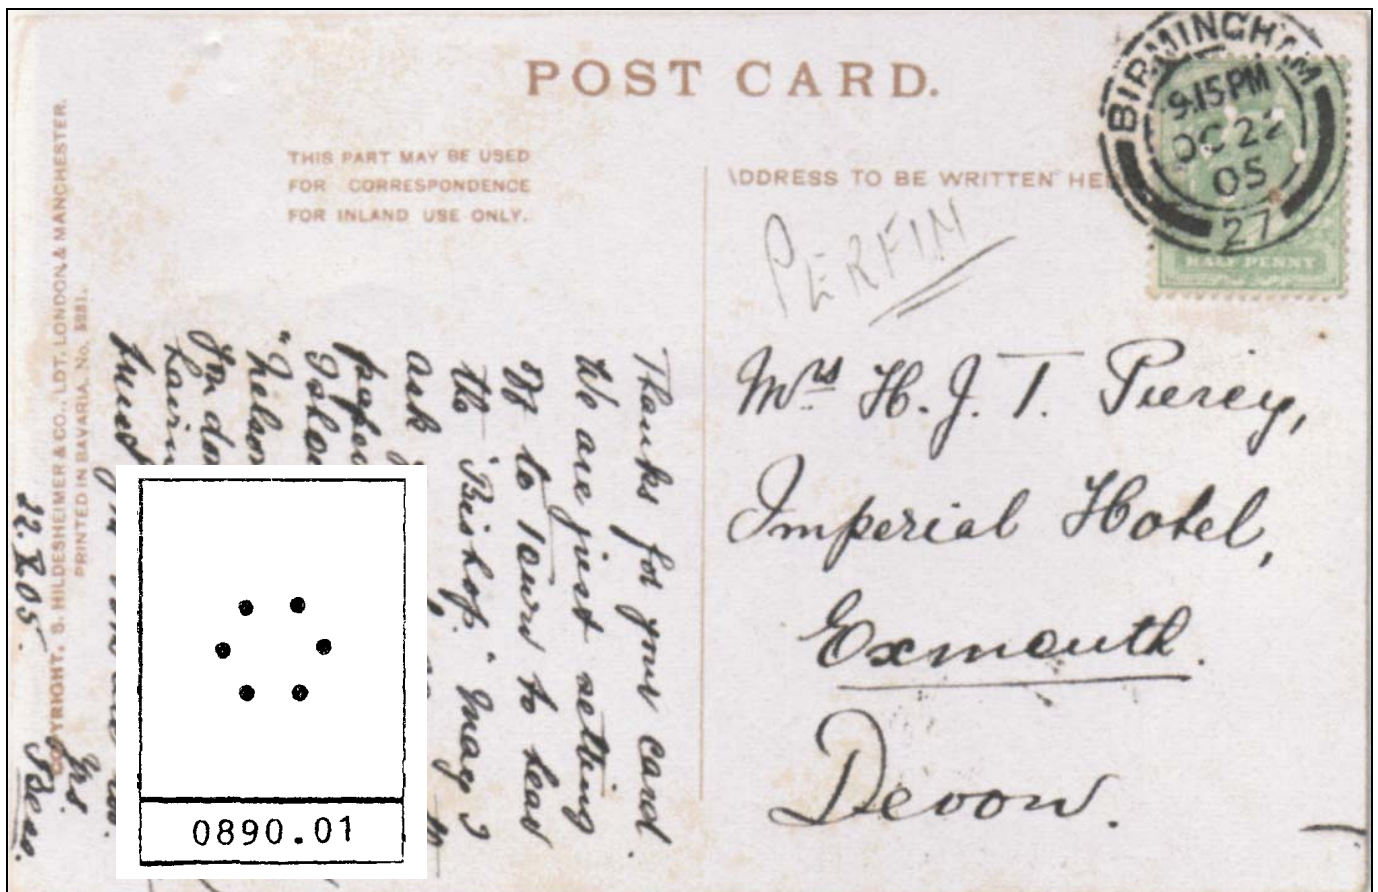 POST CARD.
THIS PART MAY BE USED
FOR CORRESPONDENCE
FOR INLAND USE ONLY.
ADDRESS TO BE WRITTEN HE
BIRMINGHAM
9.15 PM
OC 22
05
27
HALF PENNY
PERFIN
Mrs H. J. T. Piercy,
Imperial Hotel,
Exmouth.
Devon.
COPYRIGHT. S. HILDESHEIMER & CO., LDT. LONDON, & MANCHESTER.
PRINTED IN BAVARIA. No. 5281.
Thanks for your card.
We are just setting
off to Town to hear
the "Bishop." May I
ask
"Nelson
You don
havin
must
Yrs
22.X.05.
0890.01